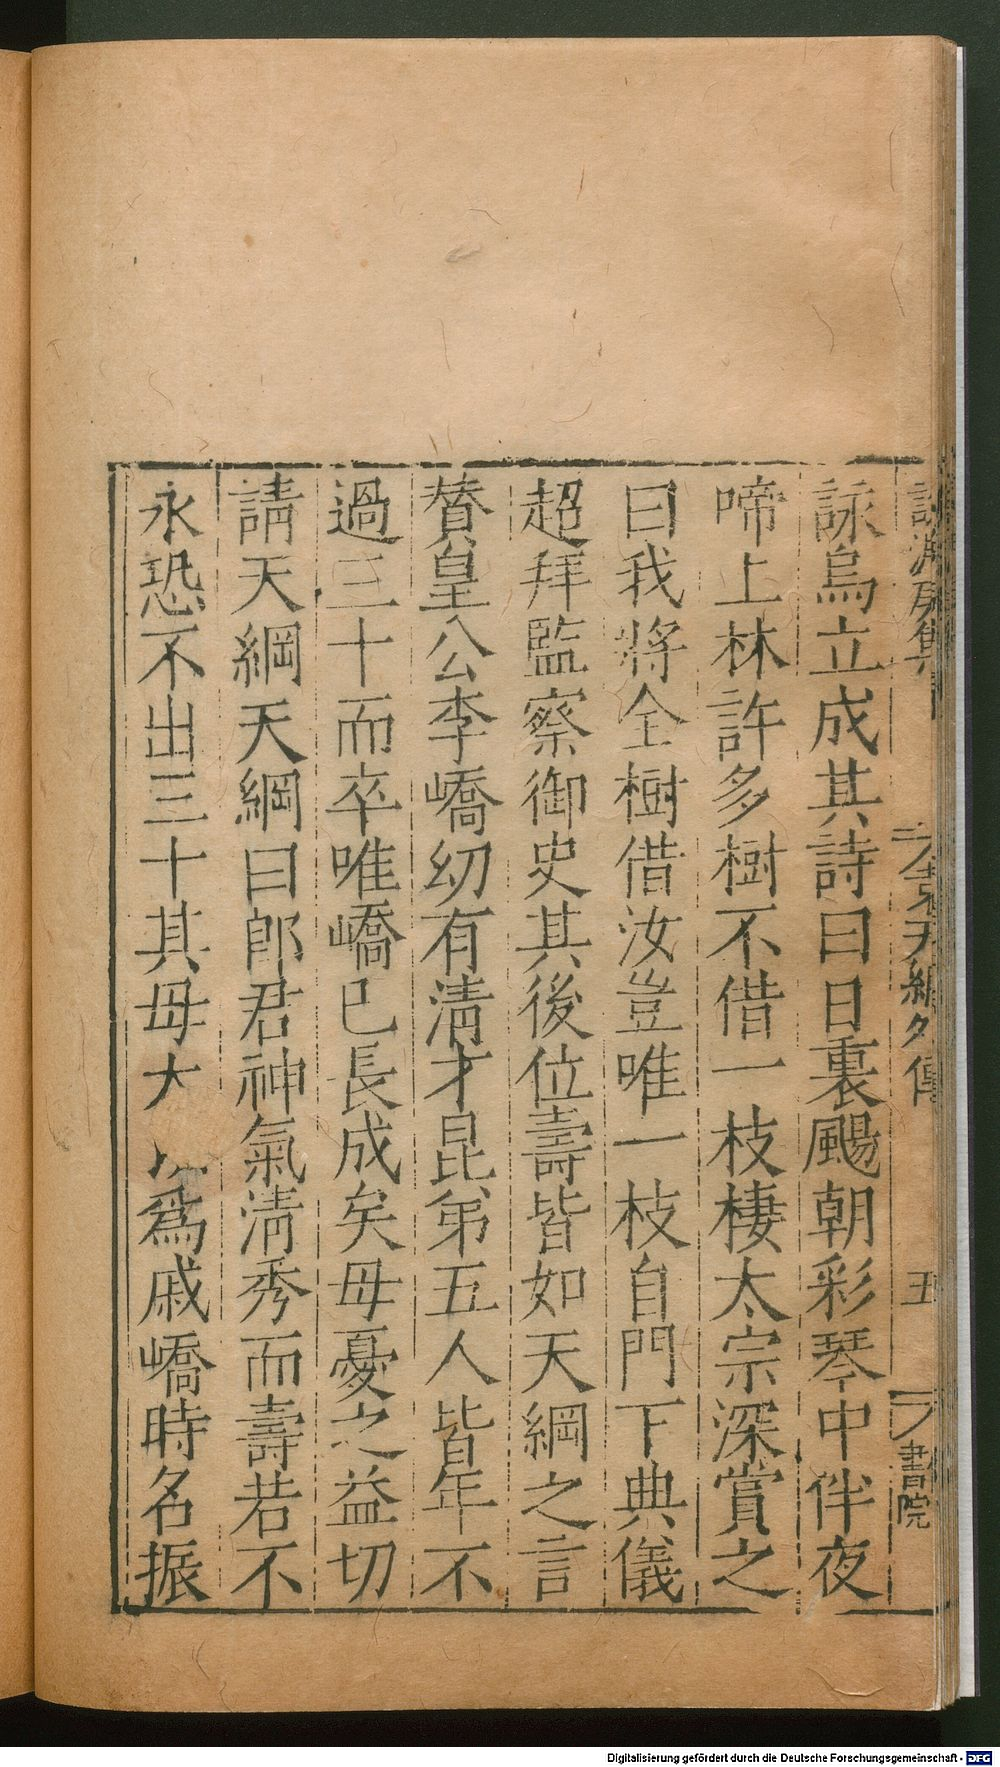 袁天綱外傳
五
書院
詠烏立成其詩曰日裏颺朝彩琴中伴夜
啼上林許多樹不借一枝棲太宗深賞之
曰我將全樹借汝豈唯一枝自門下典儀
超拜監察御史其後位壽皆如天綱之言
贊皇公李嶠幼有清才昆弟五人皆年不
過三十而卒唯嶠已長成矣母憂之益切
請天綱天綱曰郎君神氣清秀而壽若不
永恐不出三十其母大以為戚嶠時名振
Digitalisierung gefördert durch die Deutsche Forschungsgemeinschaft - DFG